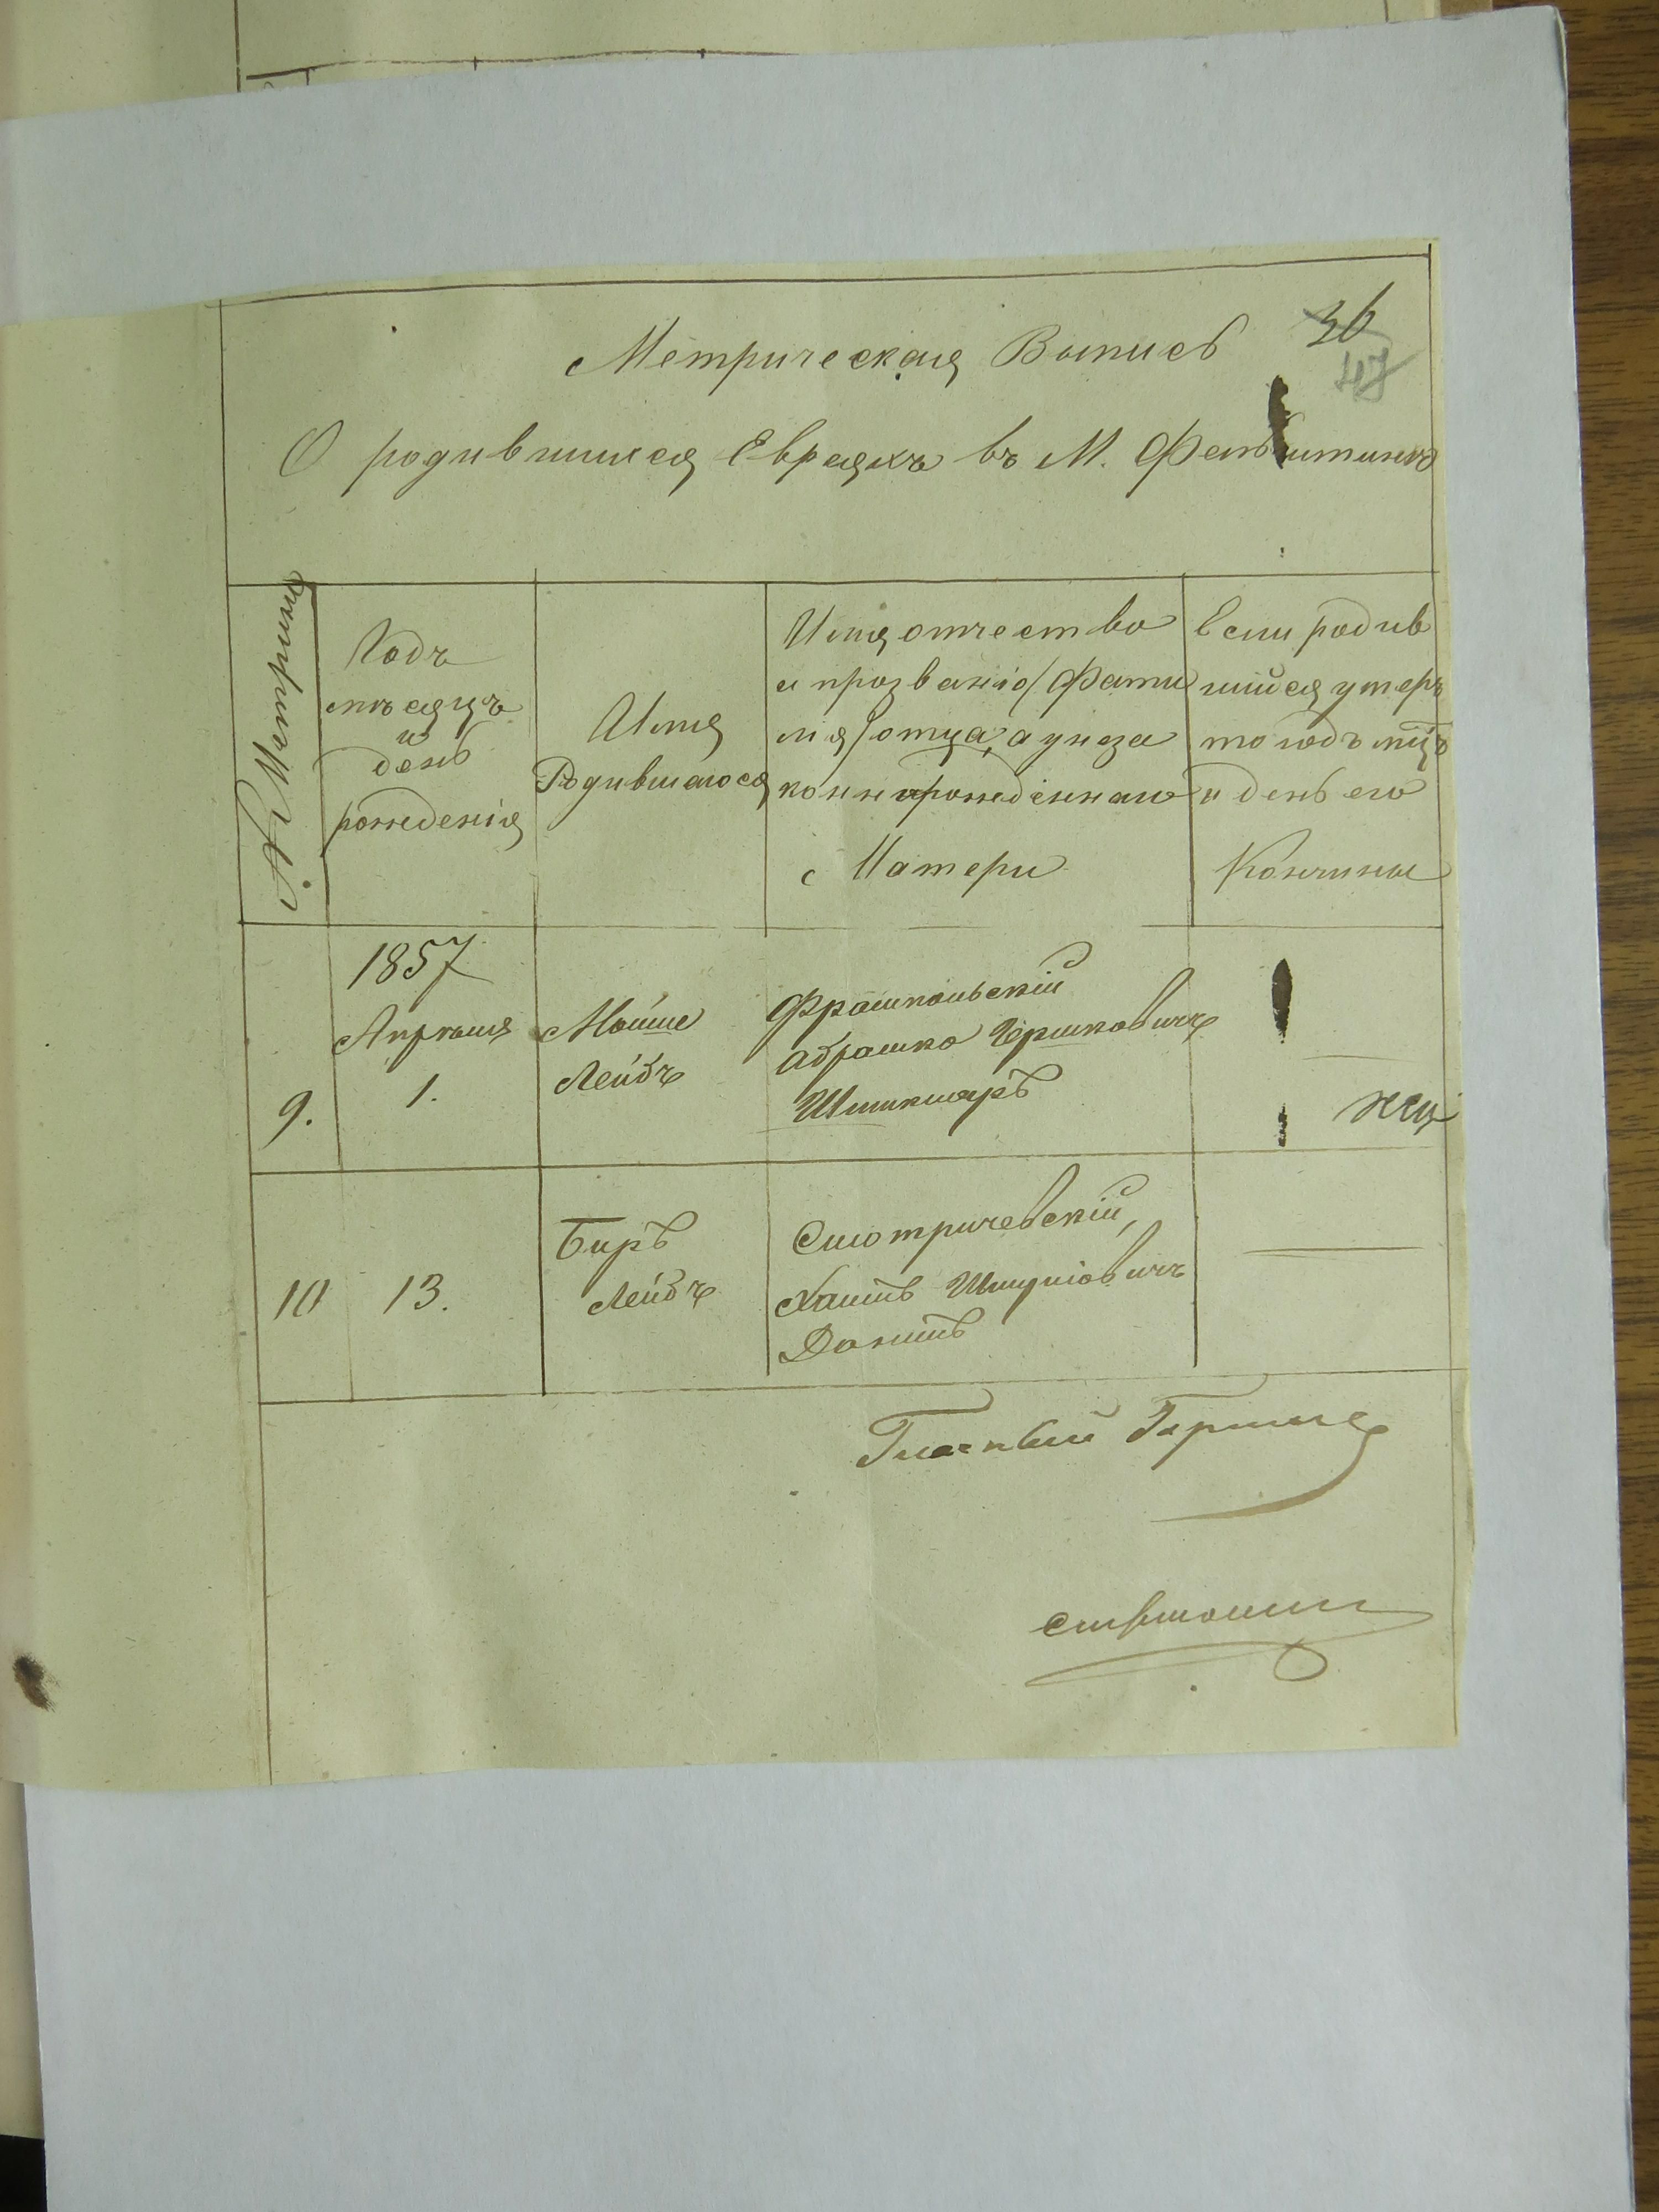 36
47
Метрическая Выпись
О родившихся Евреяхъ въ М. Фельштинѣ
№ Метрики
Годъ
мѣсяцъ
и
день
рожденія
Имя
Родившагося
Имя отчество
и прозваніе /Фами
лія/ отца, а у неза
коннорожденнаго
Матери
Если родив
шійся умеръ
то годъ мцъ
и день его
Кончины
9.
1857
Апрѣля
1.
Мойше
Лейбъ
Абрашко Гершковичъ
10
13.
Беръ
Лейбъ
Смотричевскій
Хаимъ Шмулiовичъ